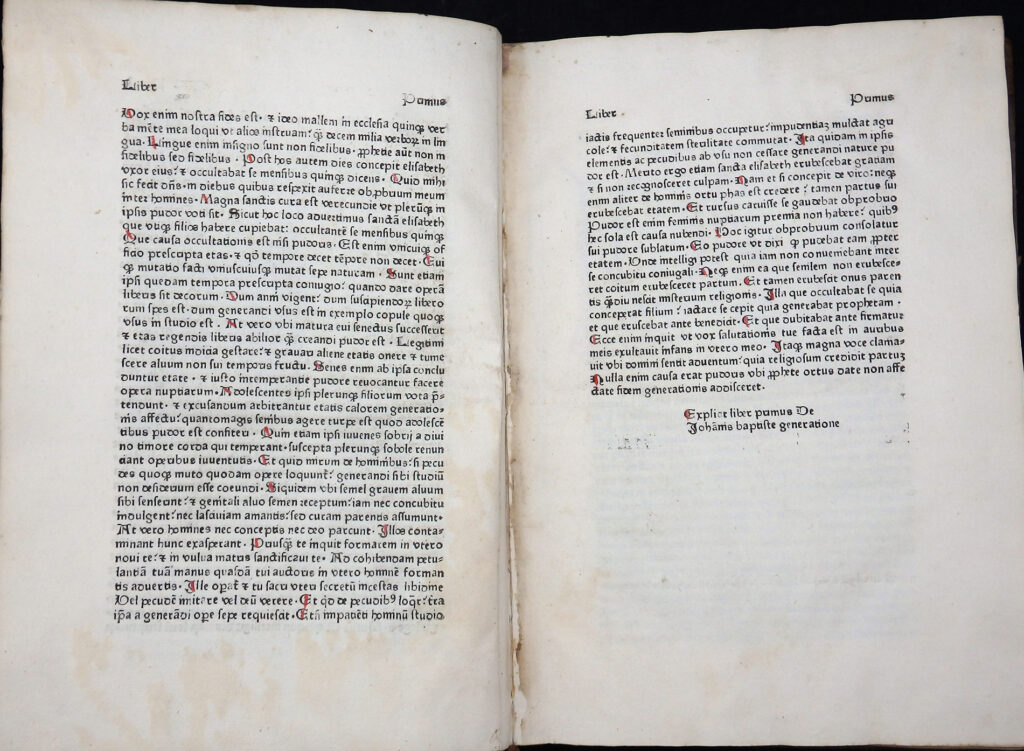 Liber
Primus
Vox enim nostra fides est· ⁊ ideo mallem in ecclesia quinqꝫ ver
ba mēte mea loqui vt alios instruam: qꝫ decem milia verborꝝ in lin
gua· Lingue enim insigno sunt non fidelibus· ꝓphetie aūt non in
fidelibus sed fidelibus· Post hos autem dies concepit elisabeth
vxor eius: ⁊ occultabat se mensibus quinqꝫ dicens· Quid mihi
sic fecit dn̄s· in diebus quibus respexit auferre obꝓbrium meum
inter homines· Magna sanctis cura est verecundie vt plerūqꝫ in
ipsis pudor voti sit· Sicut hoc loco aduertimus sanctā elisabeth
que vtiqꝫ filios habere cupiebat: occultantē se mensibus quinqꝫ
Que causa occultationis est nisi pudoris· Est enim vnicuiqꝫ of
ficio prescripta etas· ⁊ qd̄ tempore decet tēpore non decet· Eui
qꝫ mutatio facti vniuscuiusqꝫ mutat sepe naturam· Sunt etiam
ipsi quedam tempora prescripta coniugio: quando dare operā
liberis sit decorum· Dum anni vigent: dum suscipiendorꝝ libero
rum spes est· dum generandi vsus est in exemplo copule quoqꝫ
vsus in studio est· At vero vbi matura eui senectus successerit
⁊ etas regendis liberis abilior qꝫ creandi pudor est· Legitimi
licet coitus indicia gestare: ⁊ grauari aliene etatis onere ⁊ tume
scere aluum non sui temporis fructu· Senes enim ab ipsa conclu
duntur etate· ⁊ iusto intemperantie pudore reuocantur facere
opera nuptiarum· Adolescentes ipsi plerunqꝫ filiorum vota p̄
tendunt· ⁊ excusandum arbitrantur etatis calorem generatio
nis affectu: quantomagis senibus agere turpe est quod adolescē
tibus pudor est confiteri· Quin etiam ipsi iuuenes sobrij a diui
no timore corda qui temperant· suscepta plerunqꝫ sobole renun
ciant operibus iuuentutis· Et quid mirum de hominibus: si pecu
des quoqꝫ muto quodam opere loquunt᷑: generandi sibi studiū
non desiderium esse coeundi· Siquidem vbi semel grauem aluum
sibi senserint: ⁊ genitali aluo semen receptum: iam nec concubitu
indulgent: nec lasciuiam amantis: sed curam parentis assumunt·
At vero homines nec conceptis nec deo parcunt· Illos conta-
minant hunc exasperant· Priusqꝫ te inquit formarem in vtero
noui te: ⁊ in vulua matris sanctificaui te· Ad cohibendam petu-
lantiā tuā manus quasdā tui auctoris in vtero hominē forman
tis aduertis· Ille operat᷑ ⁊ tu sacri vteri secretū incestas libidine
Vel pecudē imitare vel deū verere· Et qd̄ de pecudibꝰ loqr̄: t̄ra
ip̄a a generādi oꝑe sepe requiescit· Et si impatiēti hominū studio
Liber
Primus
iactis frequenter seminibus occupetur: impudentiaꝫ mulctat agri
cole: ⁊ fecunditatem sterilitate commutat· Ita quidam in ipsis
elementis ac pecudibus ab vsu non cessare generandi nature pu
dor est· Merito ergo etiam sancta elisabeth erubescebat gratiam
⁊ si non recognosceret culpam· Nam et si concepit de viro: neqꝫ
enim aliter de hominis ortu phas est credere: tamen partus sui
erubescebat etatem· Et rursus caruisse se gaudebat obprobrio
Pudor est enim feminis nuptiarum premia non habere: quibꝰ
hec sola est causa nubendi· Hoc igitur obprobrium consolatur
sui pudore sublatum· Eo pudore vt dixi qꝫ pudebat eam ꝓpter
etatem· Vnde intelligi potest quia iam non conueniebant inter
se concubitu coniugali· Neqꝫ enim ea que senilem non erubesce-
ret coitum erubesceret partum· Et tamen erubescit onus paren
tis qꝫdiu nescit misterium religionis· Illa que occultabat se quia
conceperat filium: iactare se cepit quia generabat prophetam·
et que eruscebat ante benedicit· Et que dubitabat ante firmatur
Ecce enim inquit vt vox salutationis tue facta est in auribus
meis exultauit infans in vtero meo· Itaqꝫ magna voce clama-
uit vbi domini sentit aduentum: quia religiosum credidit partuꝫ
Nulla enim causa erat pudoris vbi ꝓphete ortus date non affe
ctate fidem generationis addisceret.
Explicit liber primus De
Johānis baptiste generatione